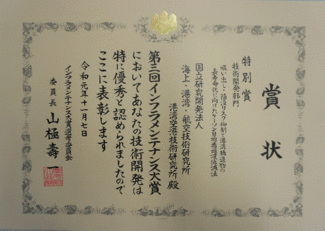 賞状
特別賞
技術開発部門
国立研究開発法人
海上・港湾・航空技術研究所
港湾空港技術研究所 殿
第三回インフラメンテナンス大賞
においてあなたの技術開発は
特に優秀と認められましたので
ここに表彰します
令和元年十一月七日
インフラメンテナンス大賞選考委員会
委員長 山極壽一